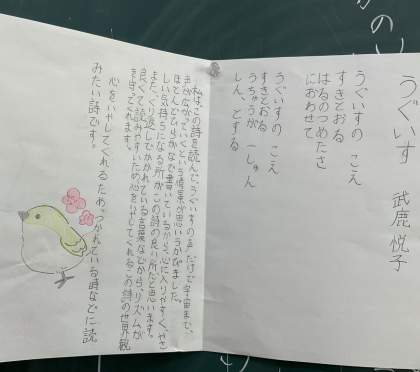 うぐいす 武鹿 悦子
うぐいすの こえ
すきとおる
はるのつめたさ
においわせて
うぐいすの こえ
すきとおる
うちゅうが 一しゅん
しん、とする
私は、この詩を読んで、うぐいすの声だけで宇宙まで、
声が広がっていくという情景が思いうかびました。
ほとんどひらがなで書いているから、心に入りやすく、やさ
しい気持ちになる所がこの詩の良い所だと思います。
また、くり返しでかかれている言葉などから、リズムが
良くて読みやすいため心をいやしてくれるこの詩の世界観
を守ってくれます。
心をいやしてくれるため、つかれている時などに読
みたい詩です。